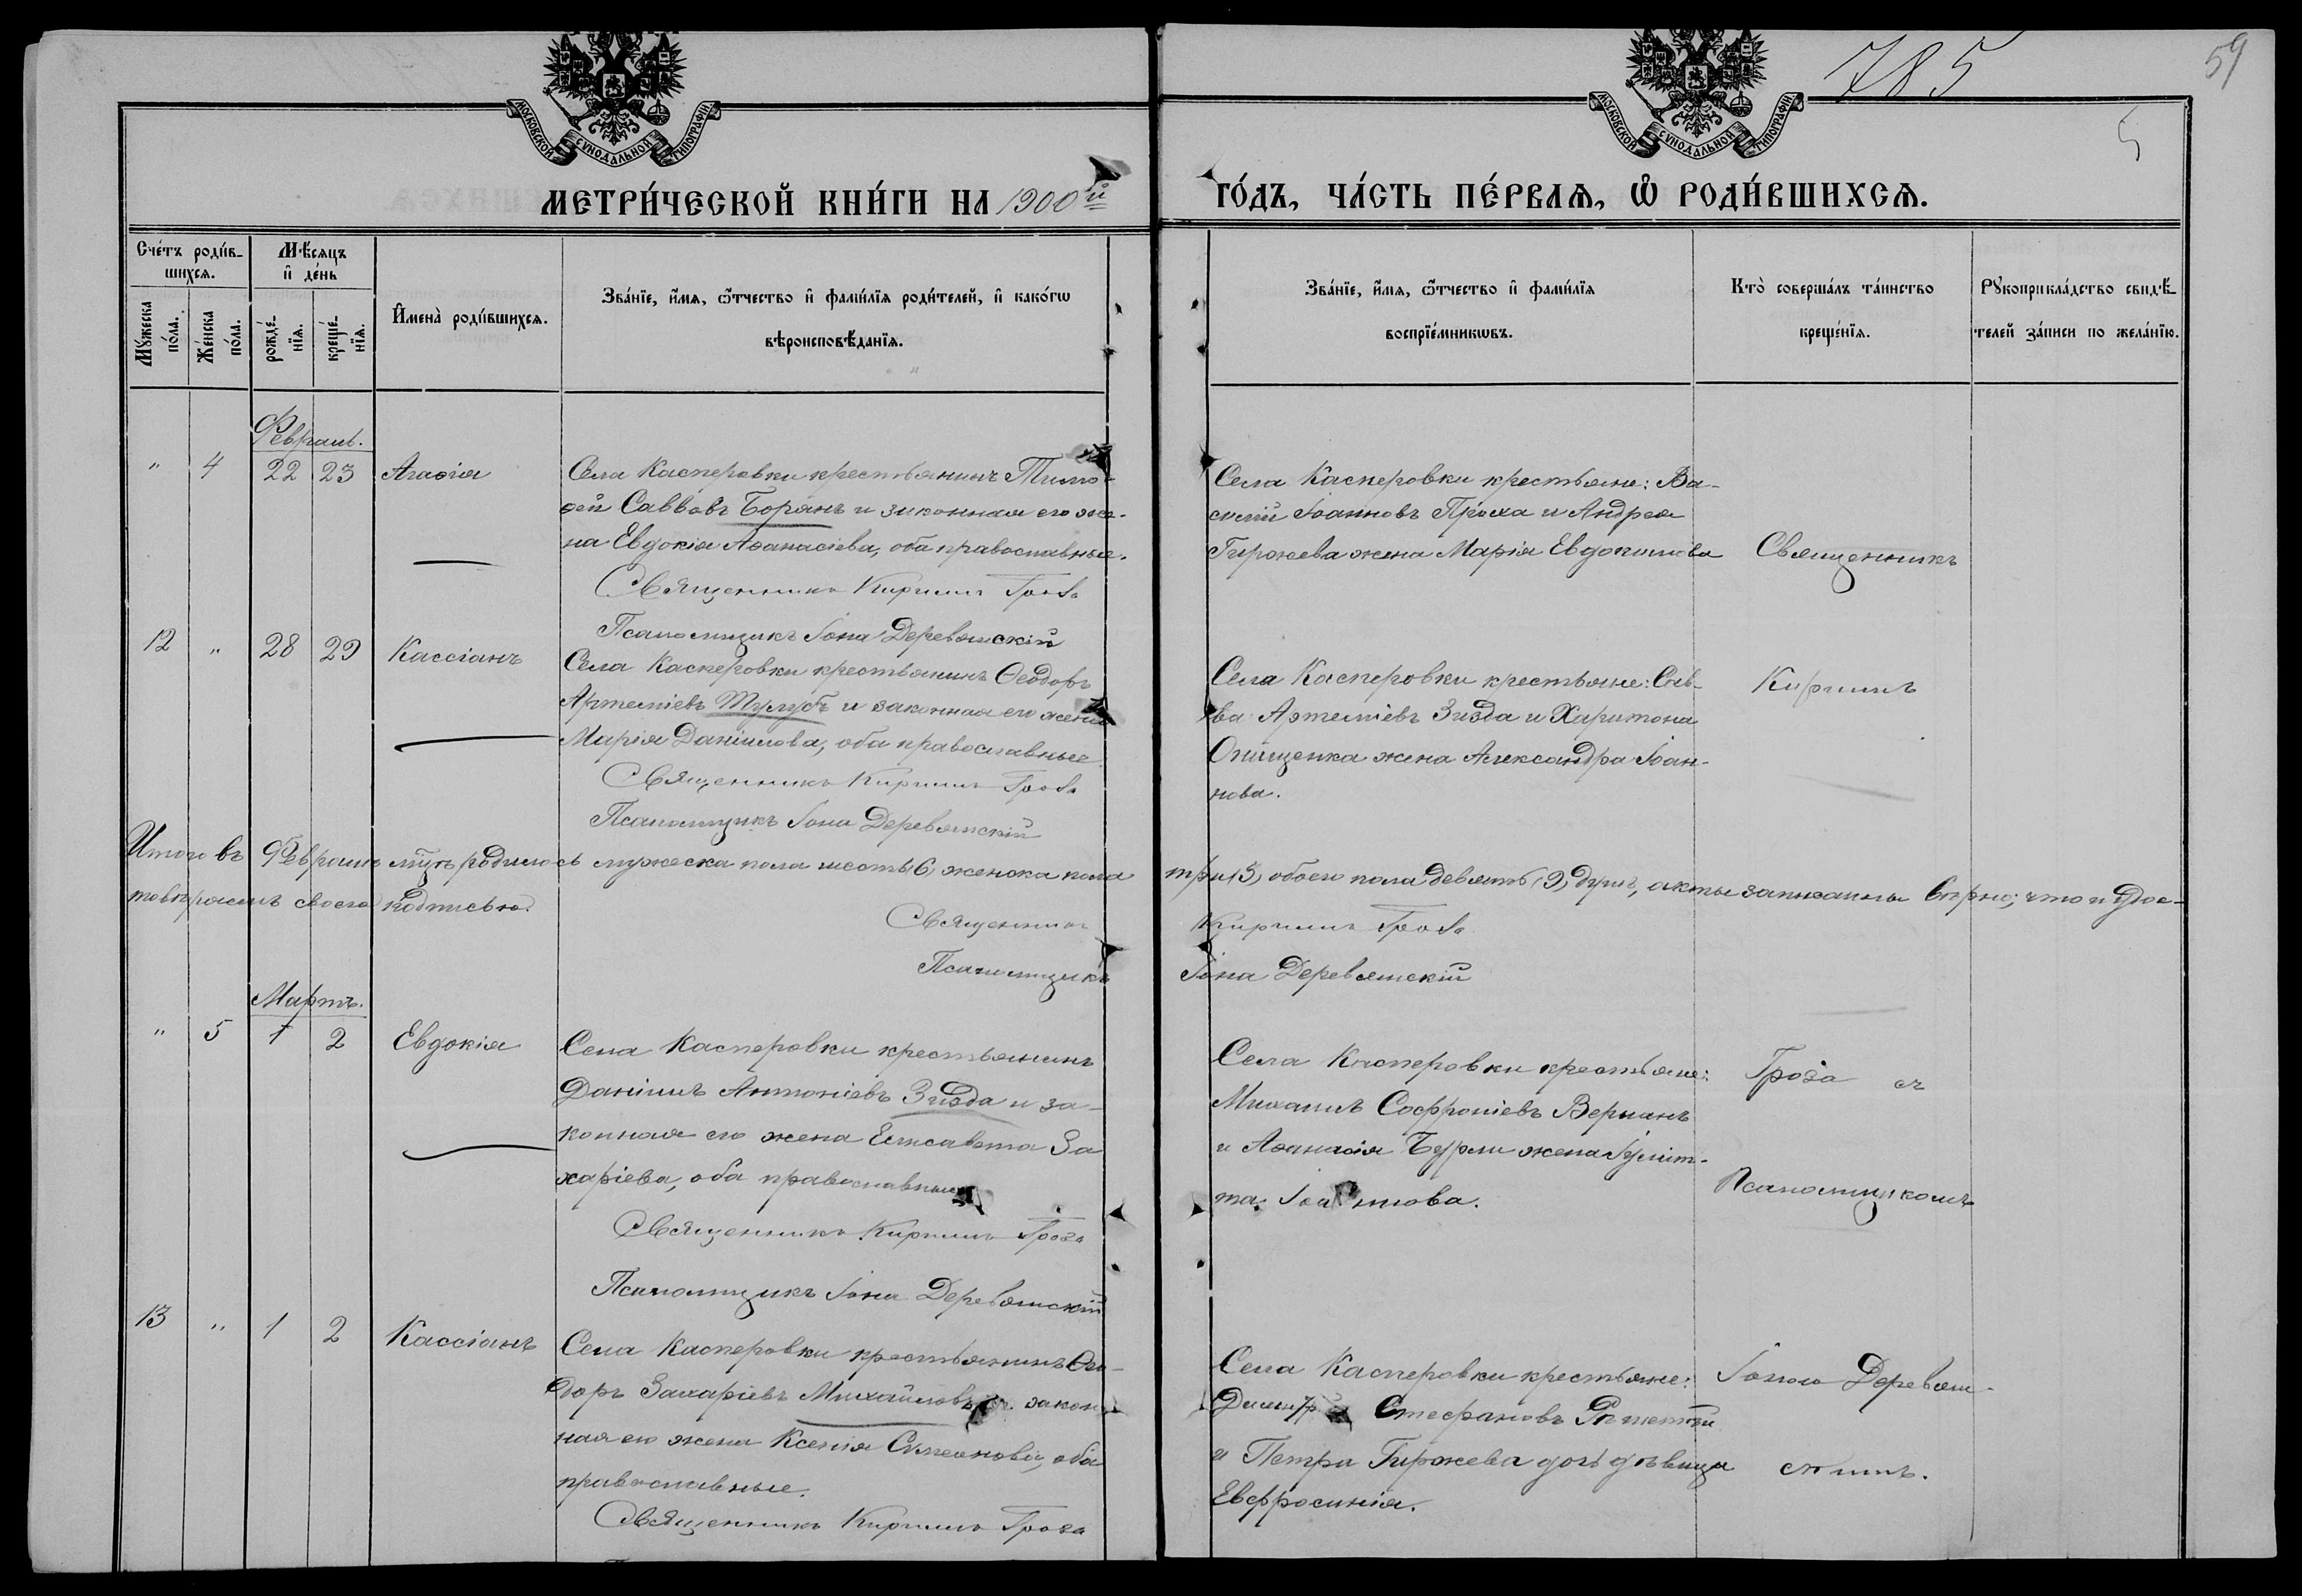 785
59
5
МОСКОВСКОЙ СѴНОДАЛЬНОЙ ТИПОГРАФІИ
МОСКОВСКОЙ СѴНОДАЛЬНОЙ ТИПОГРАФІИ
МЕТРИ́ЧЕСКОЙ КНИ́ГИ НА 1900й ГО́ДЪ, ЧА́СТЬ ПЕ́РВАѦ, Ѿ РОДИ́ВШИХСѦ.
Сче́тъ роди́в-
шихсѧ.
Мꙋ́жеска по́ла.
Же́нска по́ла.
Мѣ́сѧцъ
и҆ де́нь
рожде́-
нїѧ.
креще́-
нїѧ.
И҆мена̀ роди́вшихсѧ.
Зва́нїе, и҆́мѧ, ѻ҆́тчество и҆ фами́лїѧ роди́телей, и҆ како́гѡ
вѣроисповѣ́данїѧ.
Зва́нїе, и҆́мѧ, ѻ҆́тчество и҆ фами́лїѧ
воспрїе́мникѡвъ.
Кто̀ соверша́лъ та́инство
креще́нїѧ.
Рꙋкоприкла́дство свидѣ́-
телей за́писи по жела́нїю.
Февраль.
" 4 22 23 Агаѳія
Села Касперовки крестьянинъ Тимо-
ѳей Саввовъ Борянъ и законная его же-
на Евдокія Аѳанасіева, оба православные.
Священникъ Кириллъ Гроза
Псаломщикъ Іона Деревянскій
Села Касперовки крестьяне: Ва-
силій Іоанновъ Проха и Андрея
Гиржева жена Марія Евдокимова
Священникъ
12 " 28 29 Кассіанъ
Села Касперовки крестьянинъ Ѳеодоръ
Артеміевъ Тулубъ и законная его жена
Марія Даніилова, оба православные
Священникъ Кириллъ Гроза
Псаломщикъ Іона Деревянскій
Села Касперовки крестьяне: Сав-
ва Артеміевъ Зизда и Харитона
Онищенка жена Александра Іоан-
нова.
Кириллъ
Итого въ Февралѣ мцѣ родилось мужеска пола шесть (6) женска пола три (3) обоего пола девять (9) душъ, акты записаны вѣрно; что и удос-
товѣряемъ своею подписью.
Священникъ Кириллъ Гроза
Псаломщикъ Іона Деревянскій
Мартъ.
" 5 1 2 Евдокія
Села Касперовки крестьянинъ
Даніилъ Антоніевъ Зизда и за-
конная его жена Елисавета За
харіева, оба православные
Священникъ Кириллъ Гроза
Псаломщикъ Іона Деревянскій
Села Касперовки крестьяне:
Михаилъ Софроніевъ Верланъ
и Аѳанасія Бурли жена Іулит-
та Іоаннова.
Гроза съ
Псаломщикомъ
13 " 1 2 Кассіанъ
Села Касперовки крестьянинъ Ѳео-
доръ Захаріевъ Михайловъ и закон-
ная его жена Ксенія Симеонова, оба
православные.
Священникъ Кириллъ Гроза
Села Касперовки крестьяне:
Димитрій Стефановъ
и Петра Гиржева дочь дѣвица
Евфросинія.
Іоною Деревян-
скимъ.